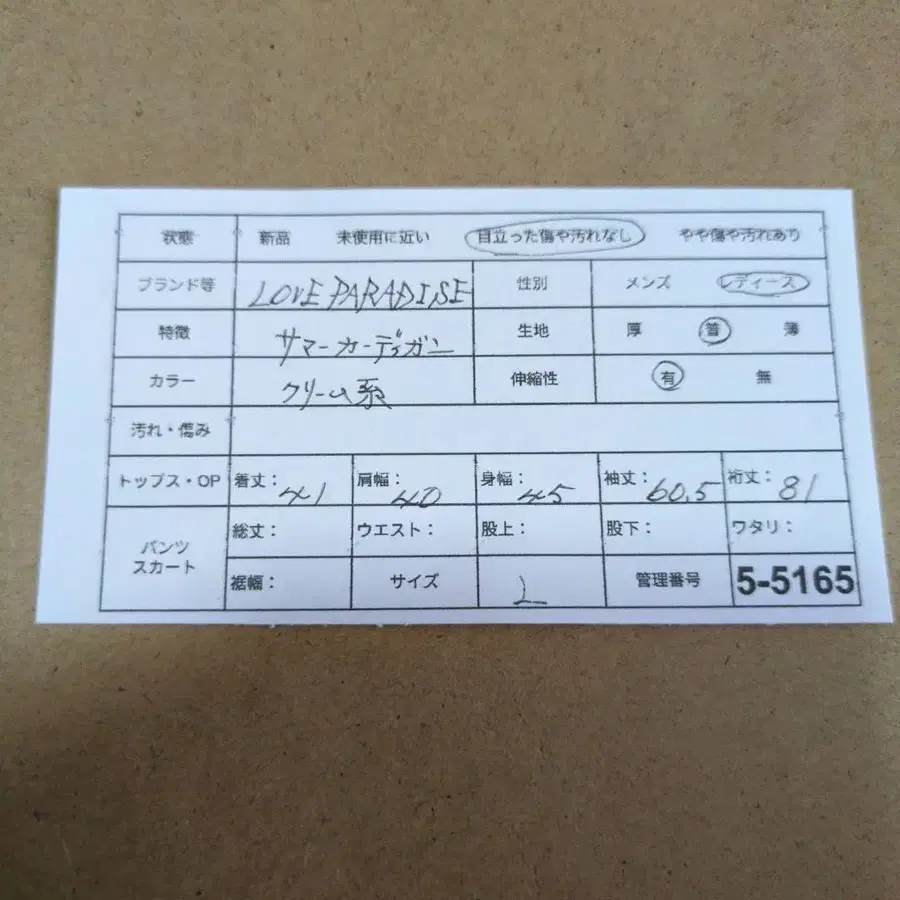 状態 新品 未使用に近い 目立った傷や汚れなし やや傷や汚れあり
ブランド等 LOVE PARADISE 性別 メンズ レディース
特徴 サマーカーディガン 生地 厚 普 薄
カラー クリーム系 伸縮性 有 無
汚れ・傷み
トップス・OP 着丈：41 肩幅：40 身幅：45 袖丈：60.5 裄丈：81
パンツ
スカート
総丈： ウエスト： 股上： 股下： ワタリ：
裾幅： サイズ L 管理番号 5-5165